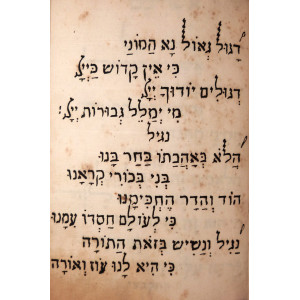 דָגוּל גְאוֹל נָא הֲמוֹנַי
כִּי אֵין קָדוֹשׁ כַּייָ
דְגוּלִים יוֹדוּךָ ייָ
מִי יְמַלֵּל גְבוּרוֹת ייָ
נגיל
הֲלֹא בְּאַהֲבָתוֹ בָּחַר בָּנוּ
בְּנִי בְּכוֹרִי קְרָאָנוּ
הוֹד וְהָדָר הֶחְכִּימָנוּ
כִּי לְעוֹלָם חַסְדוֹ עִמָנוּ
נָגִיל וְנָשִׂישׂ בְּזֹאת הַתּוֹרָה
כִּי הִיא לָנוּ עוֹז וְאוֹרָה